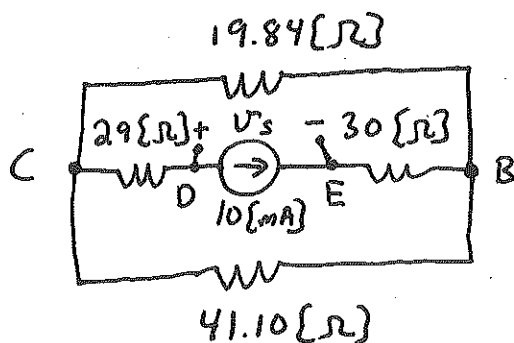 19.84[Ω]
29[Ω] + vs - 30[Ω]
C D 10[mA] E B
41.10[Ω]